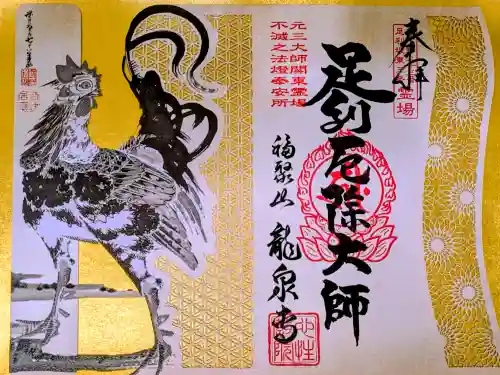 奉拝
足利厄除大師
元三大師関東霊場
不滅之法燈奉安所
福聚山 龍泉寺